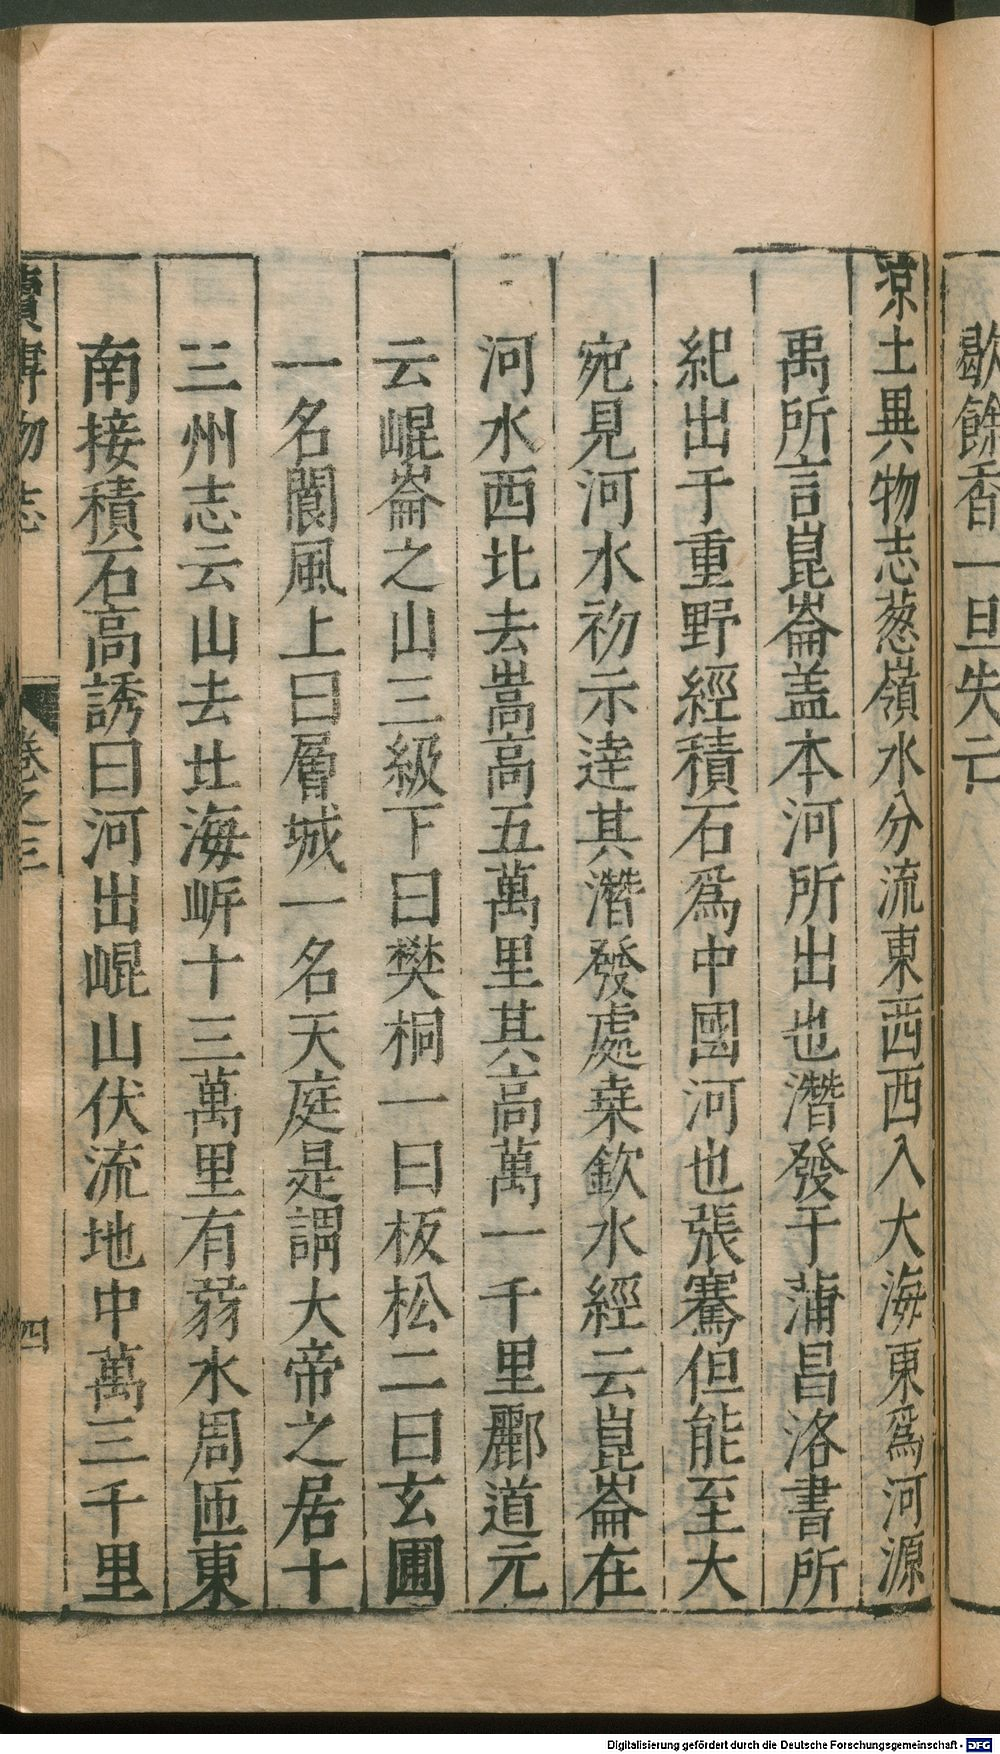 歇餘香一旦失云
凉土異物志葱嶺水分流東西西入大海東爲河源
禹所言崑崙盖本河所出也潛發于蒲昌洛書所
紀出于重野經積石爲中國河也張騫但能至大
宛見河水初示達其潛發處桑欽水經云崑崙在
河水西北去嵩高五萬里其高萬一千里酈道元
云崐崙之山三級下曰樊桐一曰板松二曰玄圃
一名閬風上曰層城一名天庭是謂大帝之居十
三州志云山去北海岍十三萬里有弱水周匝東
南接積石高誘曰河出崐山伏流地中萬三千里
續博物志 卷之三 四
Digitalisierung gefördert durch die Deutsche Forschungsgemeinschaft - DFG